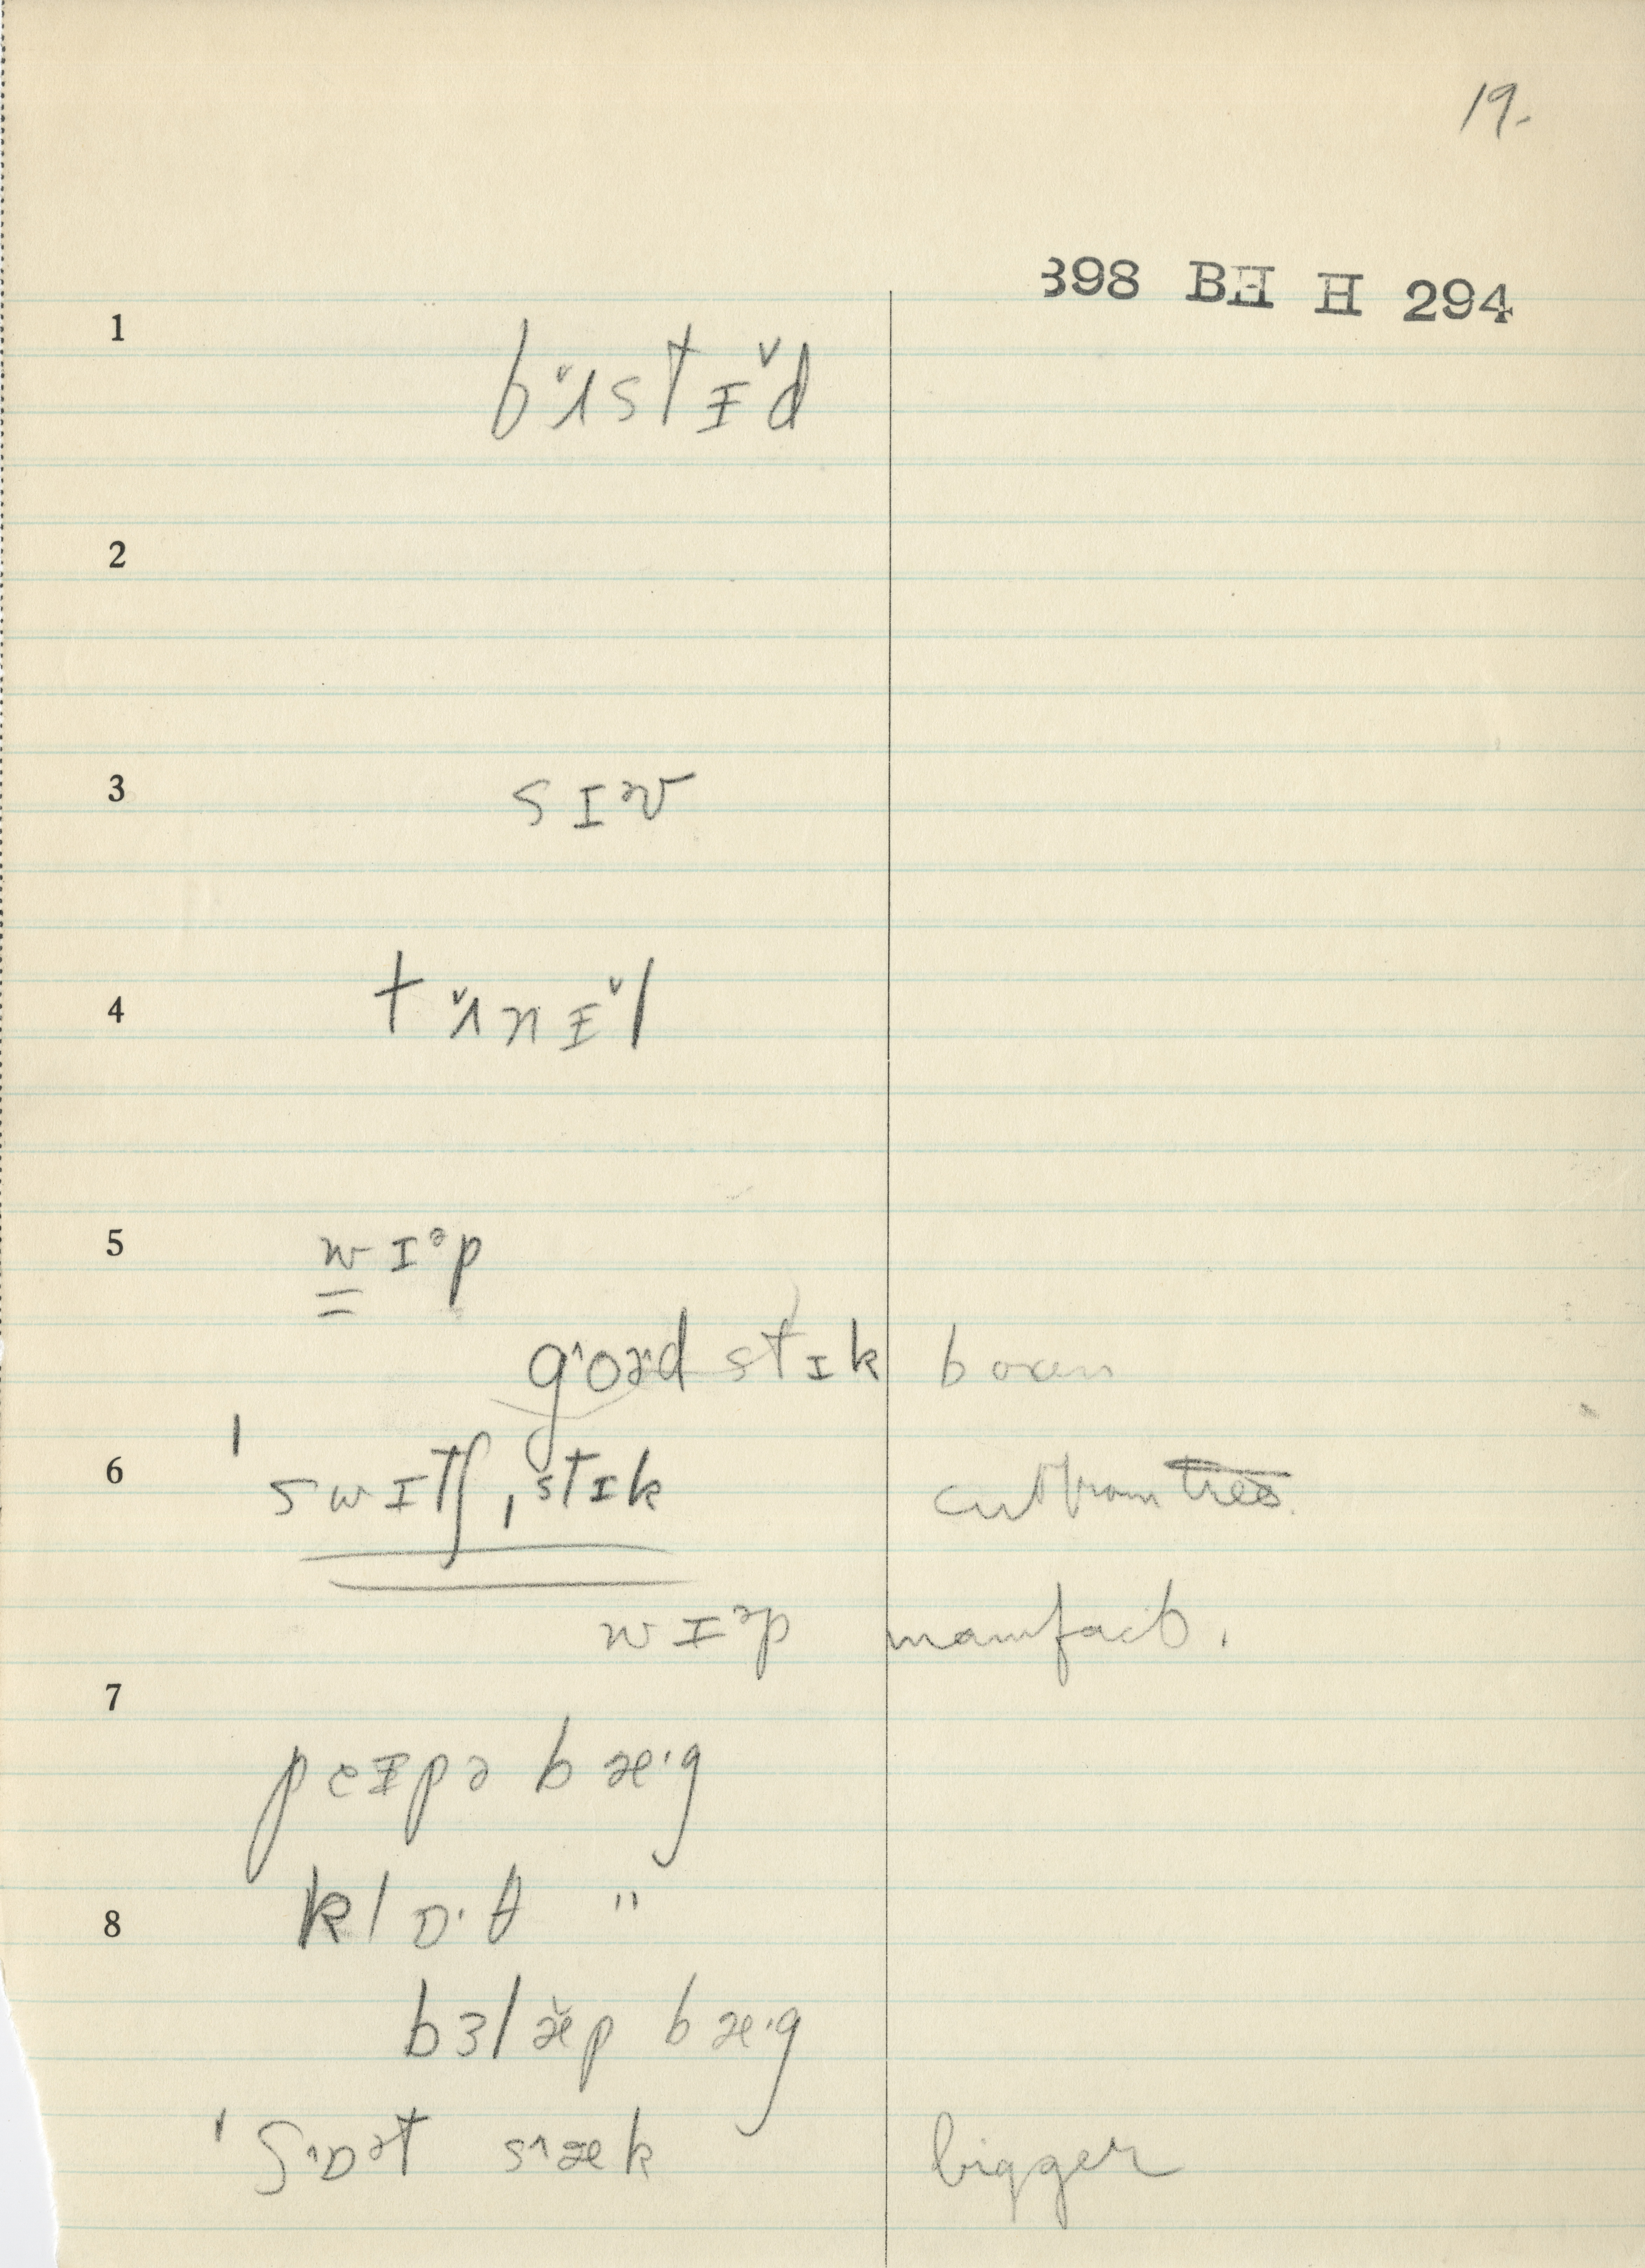 19.
398 BH H 294
1
bʌ̆stɪ̆d
2
3
sɪᵊv
4
tʌ̆nɪ̆l
5
wɪᵊp
goə·d stɪk oxen
6
ˈswɪtʃˌstɪk cut from trees.
wɪᵊp manufact.
7
peɪpə bæ·g
8
klɒ·θ "
bɜlæ̆p bæ·g
ˈʃɒᵊt sæk bigger